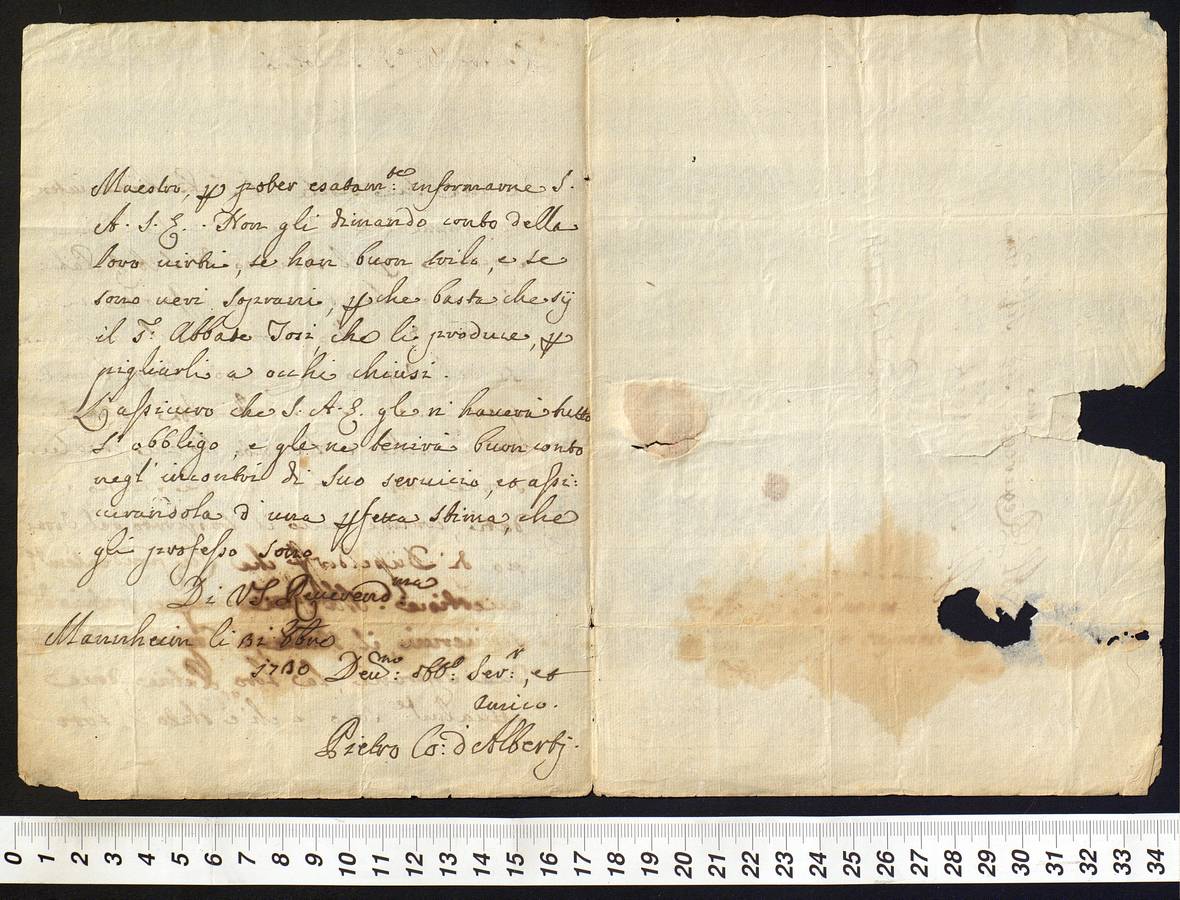 Maestro, ꝑ poter esatam:te informarne S.
A. S. E. . Non gli dimando conto della
loro virtù, se han buon stile, e se
sono veri soprani, ꝑche basta che sij
il S.r Abbate Tosi, che li produce, ꝑ
pigliarli a occhi chiusi.
L'assicuro che S. A. E. gle n' haverà tutto
l'obbligo, e gle ne tenirà buon conto
negl'incontri di suo servicio, et assi:
curandola d'una ꝑfetta stima, che
gli professo sono
Di VS Reverend.ma
Mannheim li 31 Xbre
1730 Dev:mo obb:o Ser:r, et
Amico.
Pietro Co: d'Albertj.
0 1 2 3 4 5 6 7 8 9 10 11 12 13 14 15 16 17 18 19 20 21 22 23 24 25 26 27 28 29 30 31 32 33 34